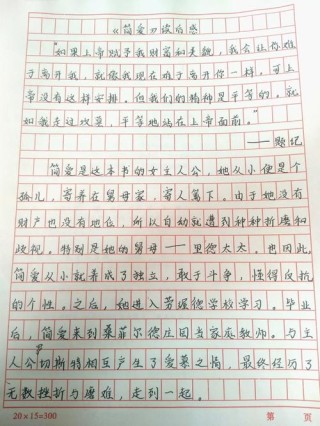 《简爱》读后感
“如果上帝赋予我财富和美貌，我会让你难
于离开我，就像我现在难于离开你一样。可上
帝没有这样安排。但我们的精神是平等的。就
如我走过坟墓，平等地站在上帝面前。”
——题记
简爱是这本书的女主人公，她从小便是个
孤儿，寄养在舅母家，寄人篱下。由于她没有
财产也没有地位，所以自幼就遭到种种折磨和
歧视。特别是她的舅母——里德太太。也因此，
简爱从小就养成了独立，敢于斗争，懂得反抗
的个性。之后，她进入劳渥德学校学习。毕业
后，简爱来到桑菲尔德庄园当家庭教师。与主
人公罗切斯特相互产生了爱慕之情，最终经历了
无数挫折与磨难，走到一起。
20×15=300
第 页